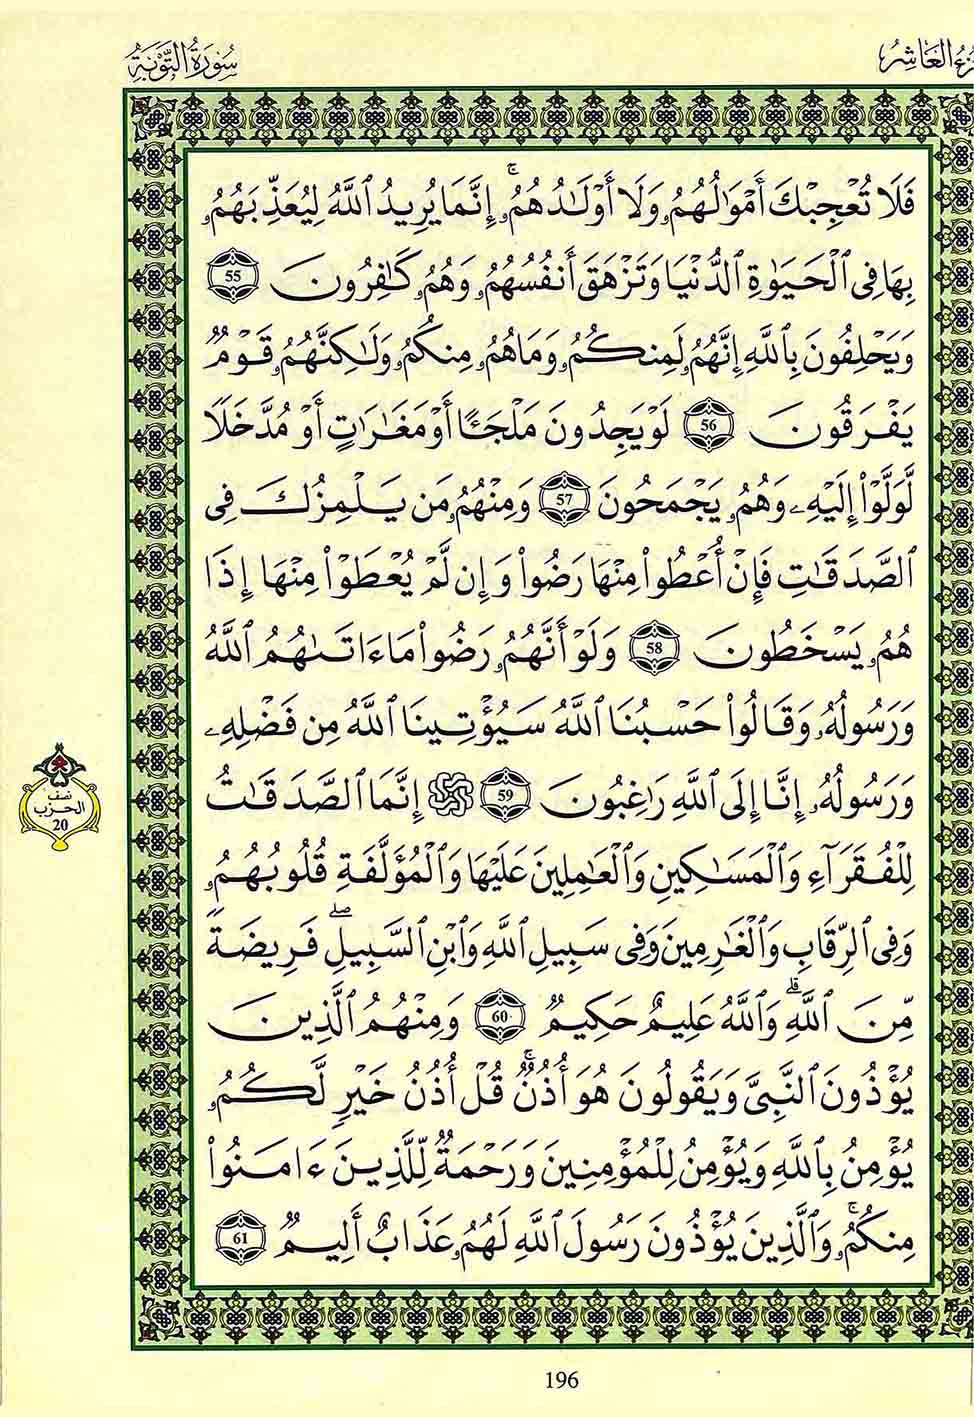 سُورَةُ التَّوْبَةِ
زءُ العَاشِرُ
فَلَا تُعْجِبْكَ أَمْوَٰلُهُمُۥ وَلَا أَوْلَـٰدُهُمُۥٓ ۚ إِنَّمَا يُرِيدُ ٱللَّهُ لِيُعَذِّبَهُمُۥ
بِهَا فِى ٱلْحَيَوٰةِ ٱلدُّنْيَا وَتَزْهَقَ أَنفُسُهُمُۥ وَهُمُۥ كَـٰفِرُونَ 55
وَيَحْلِفُونَ بِٱللَّهِ إِنَّهُمُۥ لَمِنكُمُۥ وَمَا هُمُۥ مِنكُمُۥ وَلَـٰكِنَّهُمُۥ قَوْمٌ
يَفْرَقُونَ 56 لَوْ يَجِدُونَ مَلْجَـًٔا أَوْ مَغَـٰرَٰتٍ أَوْ مُدَّخَلًا
لَّوَلَّوْا۟ إِلَيْهِۦ وَهُمُۥ يَجْمَحُونَ 57 وَمِنْهُمُۥ مَن يَلْمِزُكَ فِى
ٱلصَّدَقَـٰتِ فَإِنْ أُعْطُوا۟ مِنْهَا رَضُوا۟ وَإِن لَّمْ يُعْطَوْا۟ مِنْهَا إِذَا
هُمُۥ يَسْخَطُونَ 58 وَلَوْ أَنَّهُمُۥ رَضُوا۟ مَا ءَاتَىٰهُمُ ٱللَّهُ
وَرَسُولُهُۥ وَقَالُوا۟ حَسْبُنَا ٱللَّهُ سَيُؤْتِينَا ٱللَّهُ مِن فَضْلِهِۦ
وَرَسُولُهُۥ إِنَّا إِلَى ٱللَّهِ رَٰغِبُونَ 59 إِنَّمَا ٱلصَّدَقَـٰتُ
نصف
الحزب
20
لِلْفُقَرَآءِ وَٱلْمَسَـٰكِينِ وَٱلْعَـٰمِلِينَ عَلَيْهَا وَٱلْمُؤَلَّفَةِ قُلُوبُهُمُۥ
وَفِى ٱلرِّقَابِ وَٱلْغَـٰرِمِينَ وَفِى سَبِيلِ ٱللَّهِ وَٱبْنِ ٱلسَّبِيلِ ۖ فَرِيضَةً
مِّنَ ٱللَّهِ ۗ وَٱللَّهُ عَلِيمٌ حَكِيمٌ 60 وَمِنْهُمُ ٱلَّذِينَ
يُؤْذُونَ ٱلنَّبِىَّ وَيَقُولُونَ هُوَ أُذُنٌ ۚ قُلْ أُذُنُ خَيْرٍ لَّكُمُۥ
يُؤْمِنُ بِٱللَّهِ وَيُؤْمِنُ لِلْمُؤْمِنِينَ وَرَحْمَةٌ لِّلَّذِينَ ءَامَنُوا۟
مِنكُمُۥ ۚ وَٱلَّذِينَ يُؤْذُونَ رَسُولَ ٱللَّهِ لَهُمُۥ عَذَابٌ أَلِيمٌ 61
196